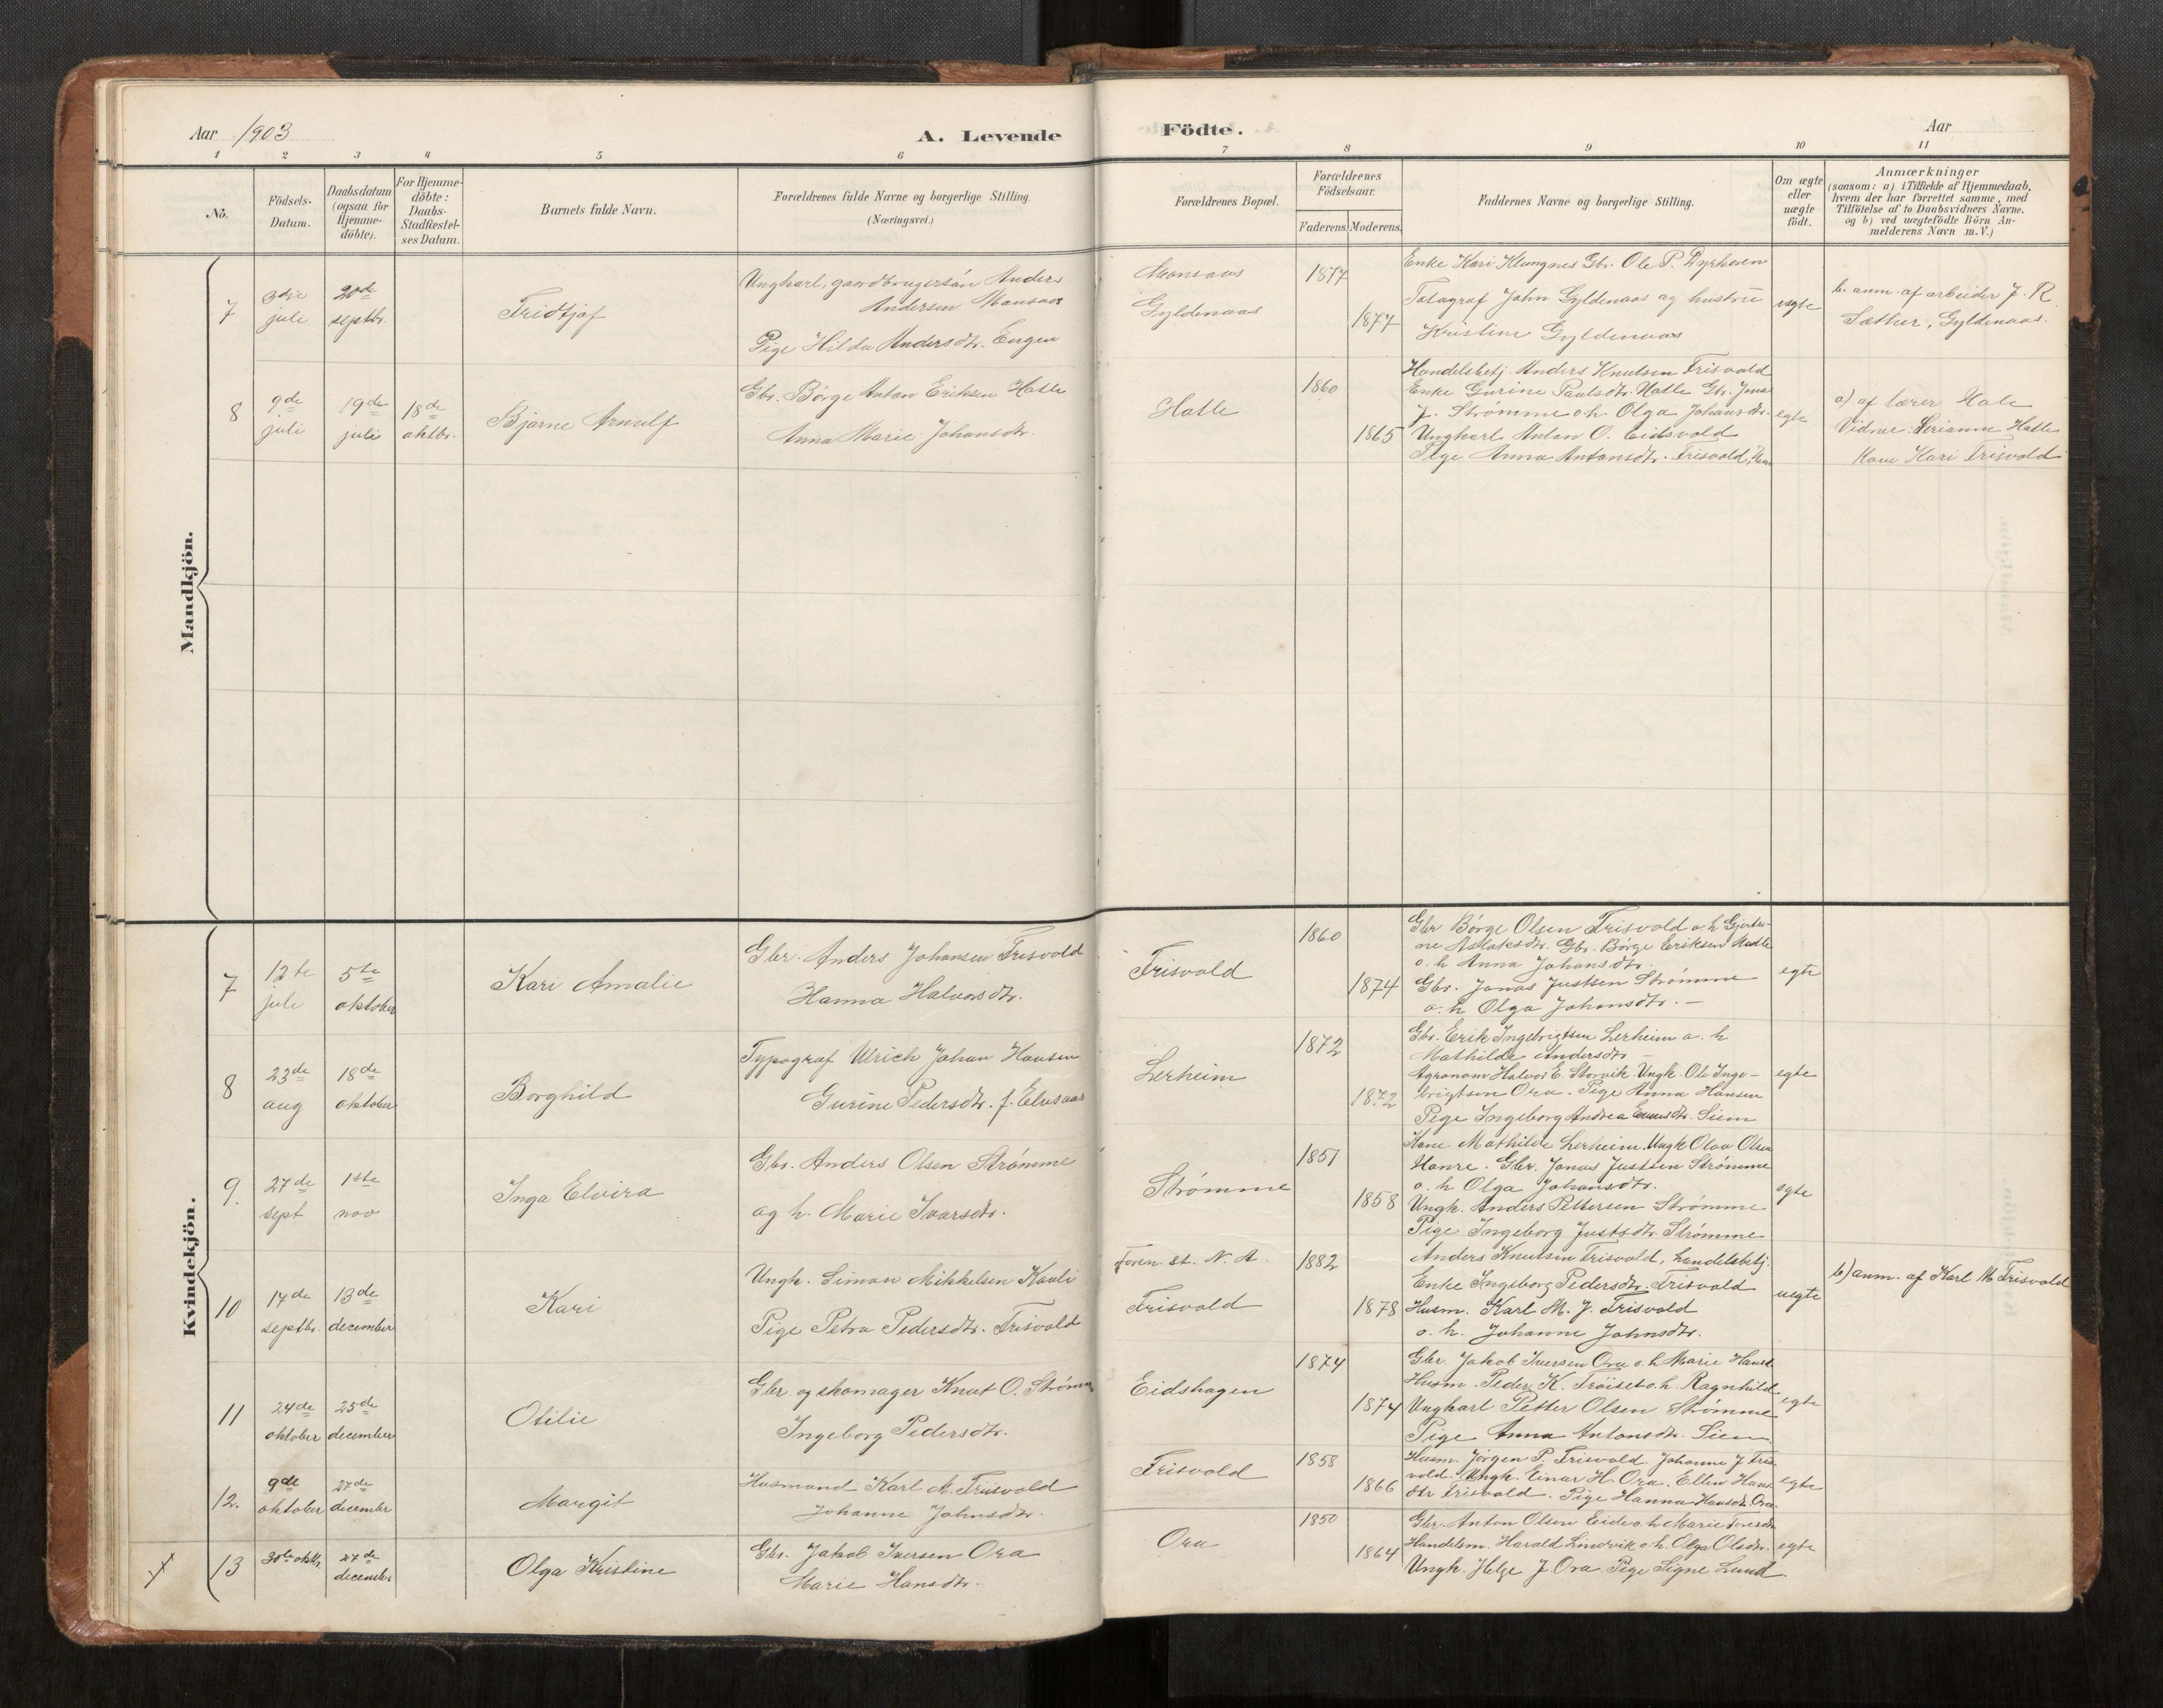 Aar 1903
A. Levende
Födte.
Aar
1 2 3 4 5 6 7 8 9 10 11
No.
Födsels-
Datum.
Daabsdatum
(ogsaa for
Hjemme-
döbte).
For Hjemme-
döbte:
Daabs-
Stadfæstel-
ses Datum.
Barnets fulde Navn.
Forældrenes fulde Navne og borgerlige Stilling.
(Næringsvei.)
Forældrenes Bopæl.
Forældrenes
Födselsaar.
Faderens. Moderens.
Faddernes Navne og borgerlige Stilling.
Om ægte
eller
uægte
födt.
Anmærkninger
(saasom: a) i Tilfælde af Hjemmedaab,
hvem der har forrettet samme, med
Tilföielse af to Daabsvidners Navne.
og b) ved uægtefödte Börn An-
melderens Navn m.V.)
Mandkjön.
7
3dje
juli
20de
septbr.
Fridtjof
Ungkarl, gaardbrugersön Anders
Andersen Monsaas
Pige Hilda Andersdtr. Eugen
Monsaas
Gyldenaas
1877
1877
Enke Kari Klungnes Gbr. Ole P. Dyrkoren
Fotograf John Gyldenaas og hustru
Kristine Gyldenaas
uegte
b. anm. af arbeider J. R.
Sæther, Gyldenaas.
8
9de
juli
19de
juli
18de
oktbr.
Bjarne Arnulf
Gbr. Børge Anton Eriksen Hatle
Anna Marie Johansdtr.
Hatle
1860
1865
Handelsbetj. Anders Knutsen Frisvold
Enke Gurine Paulsdtr. Hatle Gbr. Jonas
J. Strømme o. h. Olga Johansdtr.
Ungkarl Anton O. Eidsvold
Pige Anna Antonsdtr. Frisvold,
egte
a) af lærer Hale
Vidner: Serianne Hatle
Kone Kari Frisvold
Kvindekjön.
7
12te
juli
5te
oktober
Kari Amalie
Gbr. Anders Johansen Frisvold
Hanna Halvorsdtr.
Frisvold
1860
1874
Gbr Børge Olsen Frisvold o. h Gjertru-
ne Aslaksdtr. Gbr. Børge Eriksen Hatle
o. h Anna Johansdtr.
Gbr. Jonas Justsen Strømme
o. h Olga Johansdtr. —
egte
8
23de
aug
18de
oktober
Borghild
Typograf Ulrich Johan Hansen
Gurine Pedersdtr. f. Elvsaas
Lerheim
1872
1872
Gbr. Erik Ingebrigtsen Lerheim o. h
Mathilde Andersdtr —
Agronom Halvor E. Storvik. Ungk. Ole Inge-
brigtsen Ora. Pige Anna Hansen
Pige Ingeborg Andrea Eriksdtr. Siem
egte
9.
27de
sept
1ste
nov
Inga Elvira
Gbr. Anders Olsen Strømme
og h. Marie Ivarsdtr.
Strømme
1851
1858
Kone Mathilde Lerheim. Ungk Olav Olsen
Gbr. Jonas Justsen Strømme
o. h Olga Johansdtr.
Ungk. Anders Pettersen Strømme
Pige Ingeborg Justsdtr. Strømme
egte
10
17de
septbr.
13de
december
Kari
Ungk. Simon Mikkelsen Kavli
Pige Petra Pedersdtr. Frisvold
Foren. St. N. A.
Frisvold
1882
1878
Anders Knutsen Frisvold, handelsbetj.
Enke Ingeborg Pedersdtr. Frisvold
Husm. Karl M. J. Frisvold
o. h. Johanne Johnsdtr.
uegte
b) anm. af Karl M. Frisvold
11
24de
oktober
25de
december
Otilie
Gbr. og skomager Knut O. Strømme
Ingeborg Pedersdtr.
Eidshagen
1874
1874
Gbr. Jakob Iversen Ora o. h Marie Hansd.
Husm. Peder K. Trøiset o. h. Ragnhild
Ungkarl Petter Olsen Strømme
Pige Anna Antonsdtr. Siem
egte
12.
9de
oktober
27de
december
Margit
Husmand Karl M. Frisvold
Johanne Johnsdtr.
Frisvold
1858
1866
Husm. Jørgen P. Frisvold. Johanne J Fris-
vold. Ungk. Einar H. Ora. Ellen Hans-
dtr Frisvold. Pige Hanna Hansdtr. Ora.
egte
13
30te oktbr.
27de
december
Olga Kristine
Gbr. Jakob Iversen Ora
Marie Hansdtr.
Ora
1850
1864
Gbr. Anton Olsen Eide o. h Marie
Handelsm. Harald Lindvik o. h. Olga Olsdtr.
Ungk. Helge J Ora Pige Signe Lund.
egte